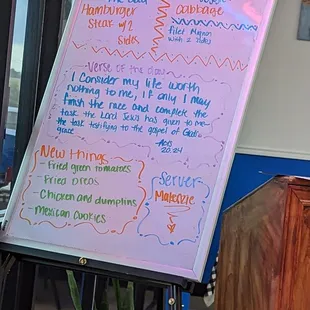 Hamburger
Steak w/ 2
Sides
Cabbage
filet Mignon
with 2 sides
Verse of the day
I Consider my life worth
nothing to me, if only I may
finish the race and complete the
task the Lord Jesus has given to me
the task testifying to the gospel of God's
grace
Acts
20:24
New things
- Fried green tomatoes
- Fried Oreos
- Chicken and dumplins
- Mexican Cookies
Server
Makenzie